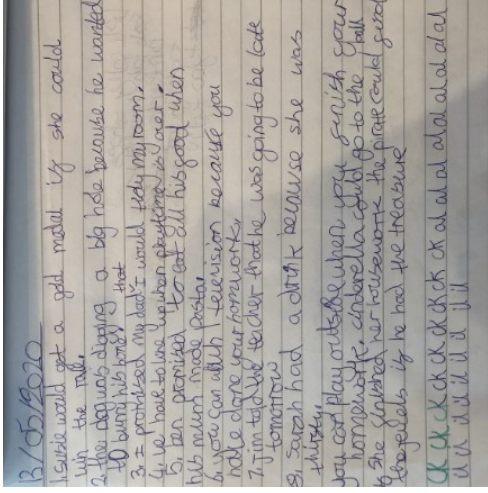 13/05/2020
1. Susie would get a gold medal if she could
win the race.
2. the dog was digging a big hole because he wanted
to bury his bone.
3. I promised my dad that I would tidy my room.
4. we have to line up when playtime is over.
5. Ben promised to eat all his food when
his mum made pasta.
6. you can watch television because you
have done your homework.
7. Jim told his teacher that he was going to be late
tomorrow
8. Sarah had a drink because she was
thirsty
you can play outside when you finish your
homework. cinderella could go to the ball
if she finished her housework the pirate could
the jewels if he had the treasure
ck ck ck ck ck ck ck ck ck al al al al al al al al al
il il il il il il il il